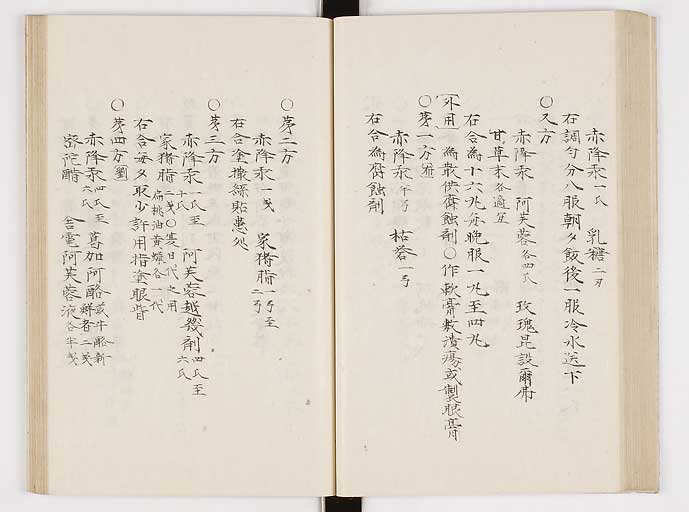 赤降汞一氏 乳糖二刃
右調匀分八服朝夕飯後一服冷水送下
○又方
赤降汞 阿芙蓉各四氏 玫瑰昆設爾弗
甘草末各適宜
右合為十六丸每晚服一丸至四丸
〔外用〕為散供腐蝕剤○作軟膏敷潰瘍或製眼膏
○第一方
赤降汞 枯礬一丂
右合為腐蝕剤
○第二方
赤降汞一戔 家猪脂一丂至二丂
右合塗撒綿貼患処
○第三方
赤降汞一氏至十氏 阿芙蓉越幾剤四氏至六氏
家猪脂二戔○寒日代之用扁桃油黄蝋各一代
右合每夕取少許用指塗眼背
○第四方
赤降汞四氏至六氏 葛加阿酪或牛酪新鮮者二戔
密陀醋 舎電阿芙蓉液各半戔